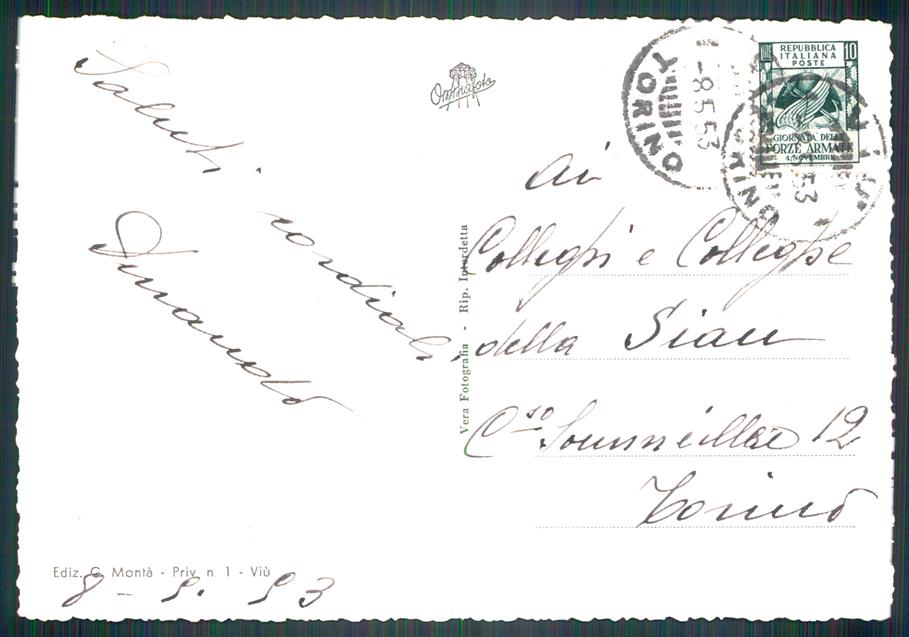 Saluti
cordiali
Armando
Omniafoto
Vera Fotografia - Rip. Interdetta
REPUBBLICA
ITALIANA
POSTE
10
GIORNATA DELLE
FORZE ARMATE
4 NOVEMBRE
TORINO
-8.5.53
VIÙ
TORINO
53
Ai
Colleghi e Colleghe
della Siau
C.so Sommeiller 12
Torino
Ediz. G. Montà - Priv. n 1 - Viù
8 - 5. 53